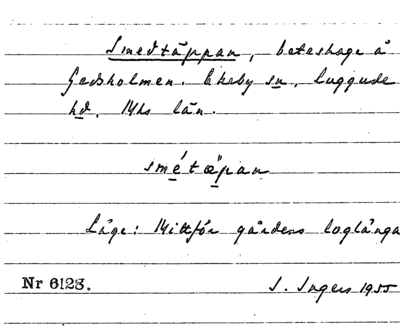 Smedtäppan, beteshage å
Gedsholmen. Ekeby sn, Luggude
hd, Mhs län.
smétäpan
Läge: Mittför gårdens loglänga
Nr 6123. I. Ingers 1955